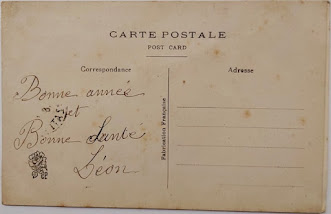 CARTE POSTALE
POST CARD
Correspondance
Adresse
Bonne année
et
Bonne Santé
Léon
Fabrication Française